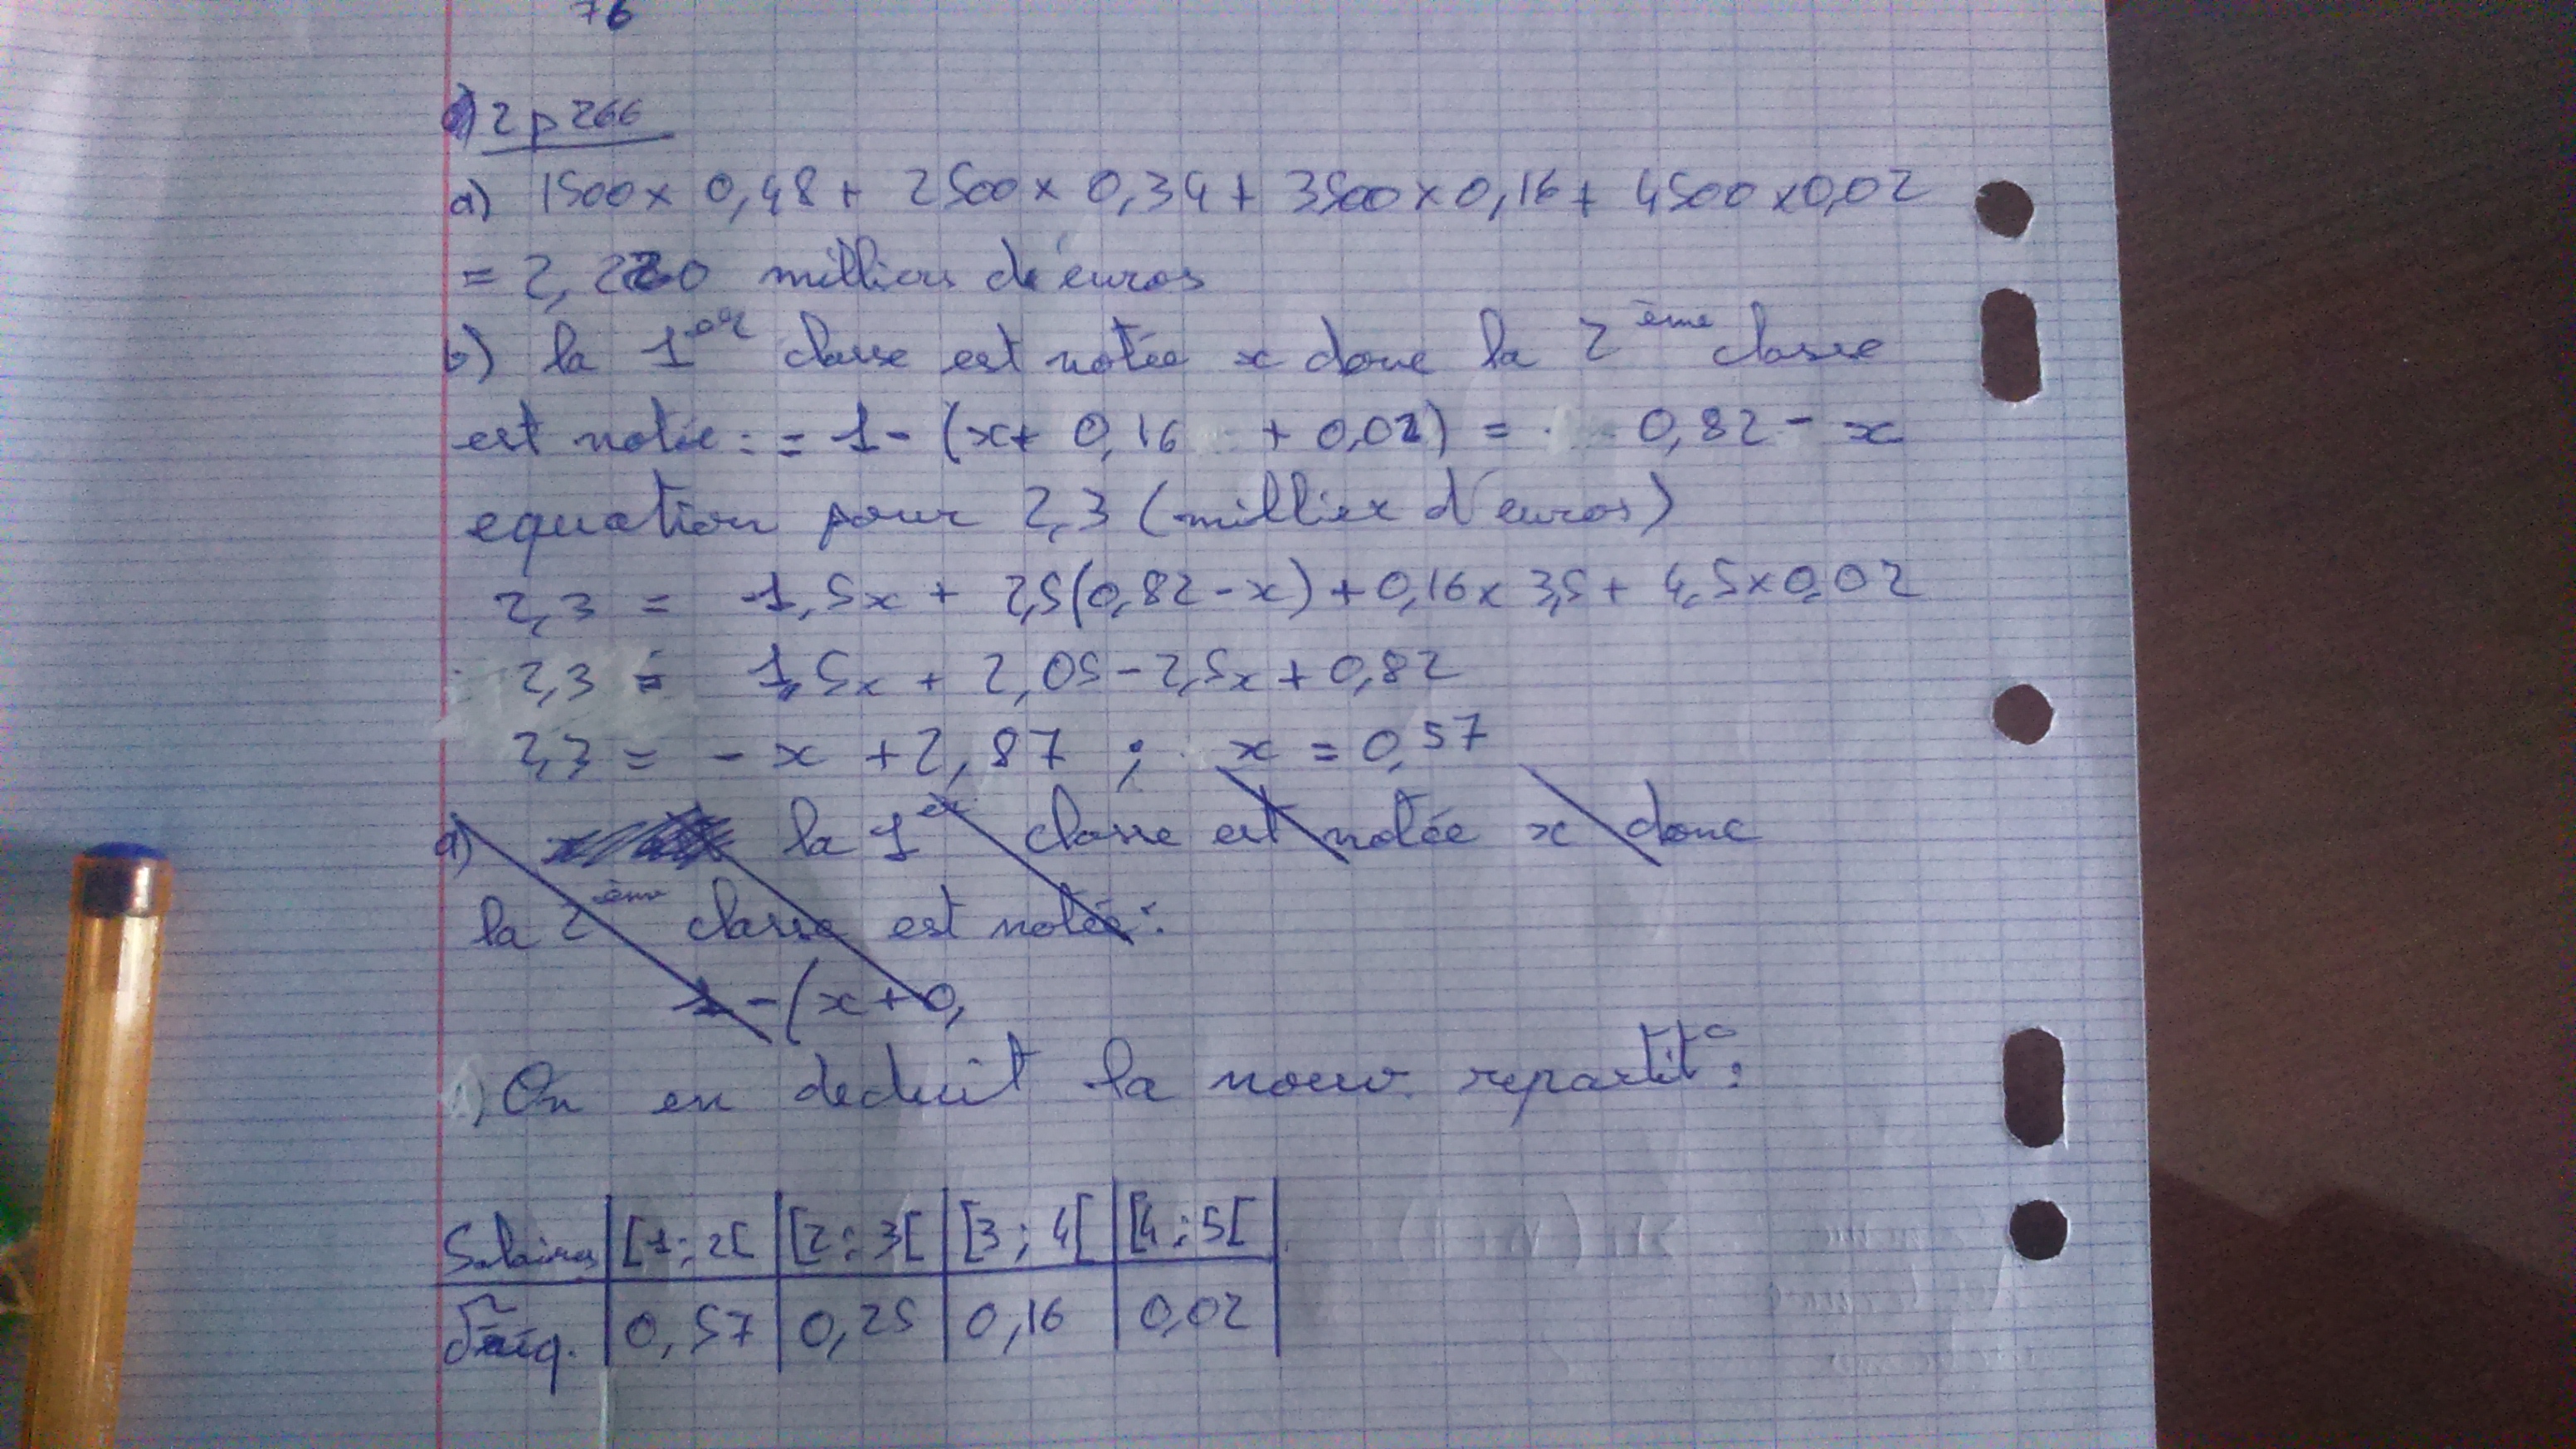 76
2 p 266
a) 1500 x 0,48 + 2500 x 0,34 + 3500 x 0,16 + 4500 x 0,02
= 2,220 milliers d'euros
b) la 1ere classe est notée x donc la 2ème classe
est notée : = 1 - (x + 0,16 + 0,02) = 0,82 - x
equation pour 2,3 (millier d'euros)
2,3 = 1,5x + 2,5(0,82 - x) + 0,16 x 3,5 + 4,5 x 0,02
2,3 = 1,5x + 2,05 - 2,5x + 0,82
2,3 = - x + 2,87 ; x = 0,57
d) la 1er classe est notée x donc
la 2ème classe est notée :
1 - (x + 0,
On en deduit la nouv. repartit° :
Salaires [1 ; 2[ [2 ; 3[ [3 ; 4[ [4 ; 5[
fréq. 0,57 0,25 0,16 0,02